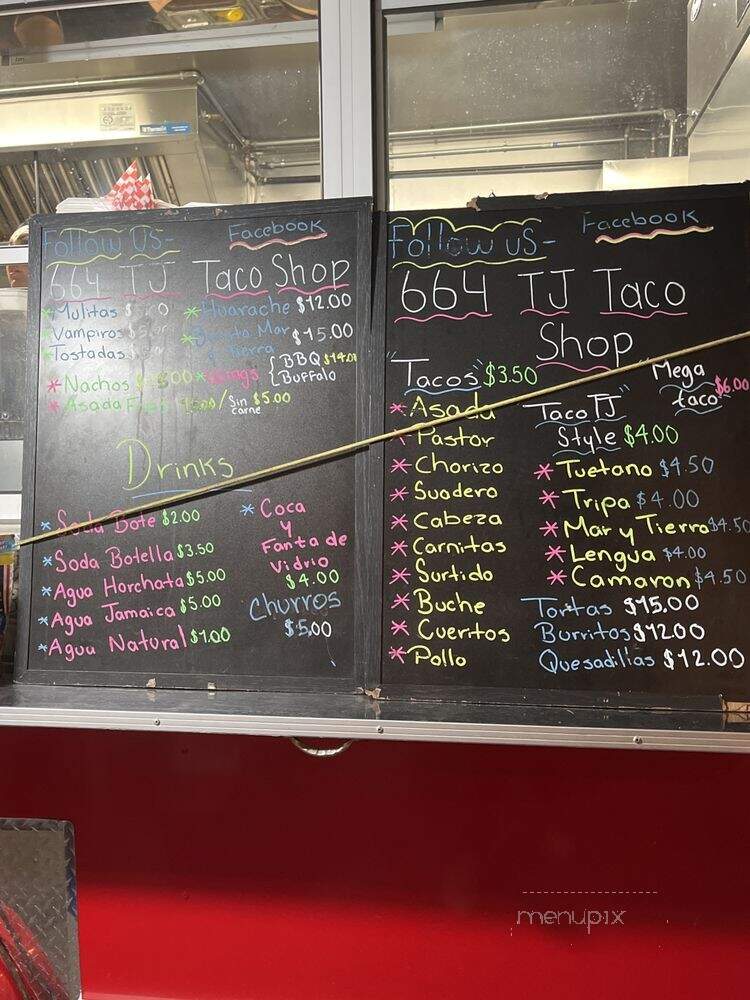 Follow US- Facebook
664 TJ Taco Shop
*Mulitas
*Vampiros
*Tostadas
*Nachos
*Asada
*Huarache $12.00
Mar $15.00
y Tierra
*Wings { BBQ $14.00
Buffalo
/ Sin carne $5.00
Drinks
*Soda Bote $2.00
*Soda Botella $3.50
*Agua Horchata $5.00
*Agua Jamaica $5.00
*Agua Natural $1.00
*Coca
y
Fanta de
Vidrio
$4.00
Churros
$5.00
Follow us- Facebook
664 TJ Taco
Shop
"Tacos" $3.50
*Asada
*Pastor
*Chorizo
*Suadero
*Cabeza
*Carnitas
*Surtido
*Buche
*Cueritos
*Pollo
Mega
taco $6.00
Taco TJ"
Style $4.00
*Tuetano $4.50
*Tripa $4.00
*Mar y Tierra $4.50
*Lengua $4.00
*Camaron $4.50
Tortas $15.00
Burritos $12.00
Quesadillas $12.00
menupix